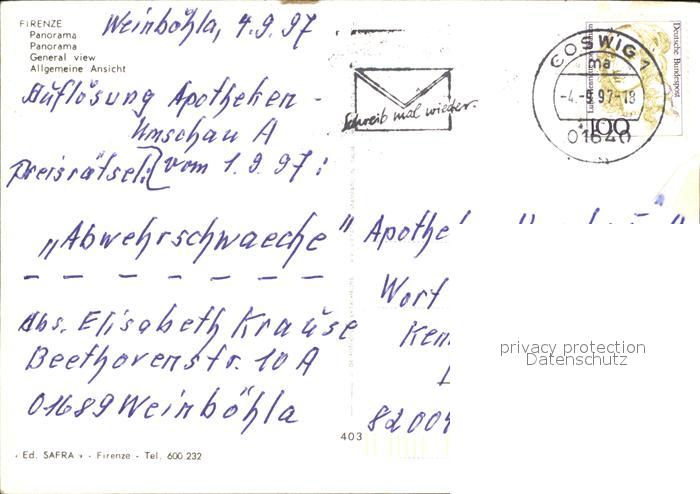 FIRENZE
Panorama
Panorama
General view
Allgemeine Ansicht
Weinböhla, 4.9.97
Auflösung Apotheken-
Umschau A
Preisrätsel: vom 1.9.97:
„Abwehrschwaeche"
Abs. Elisabeth Krause
Beethovenstr. 10 A
01689 Weinböhla
Ed. SAFRA - Firenze - Tel. 600.232
403
Schreib mal wieder.
COSWIG 1
ma
-4.-9.97-18
01640
Deutsche Bundespost
100
Apothe
Wort
Ken
82004
privacy protection
Datenschutz